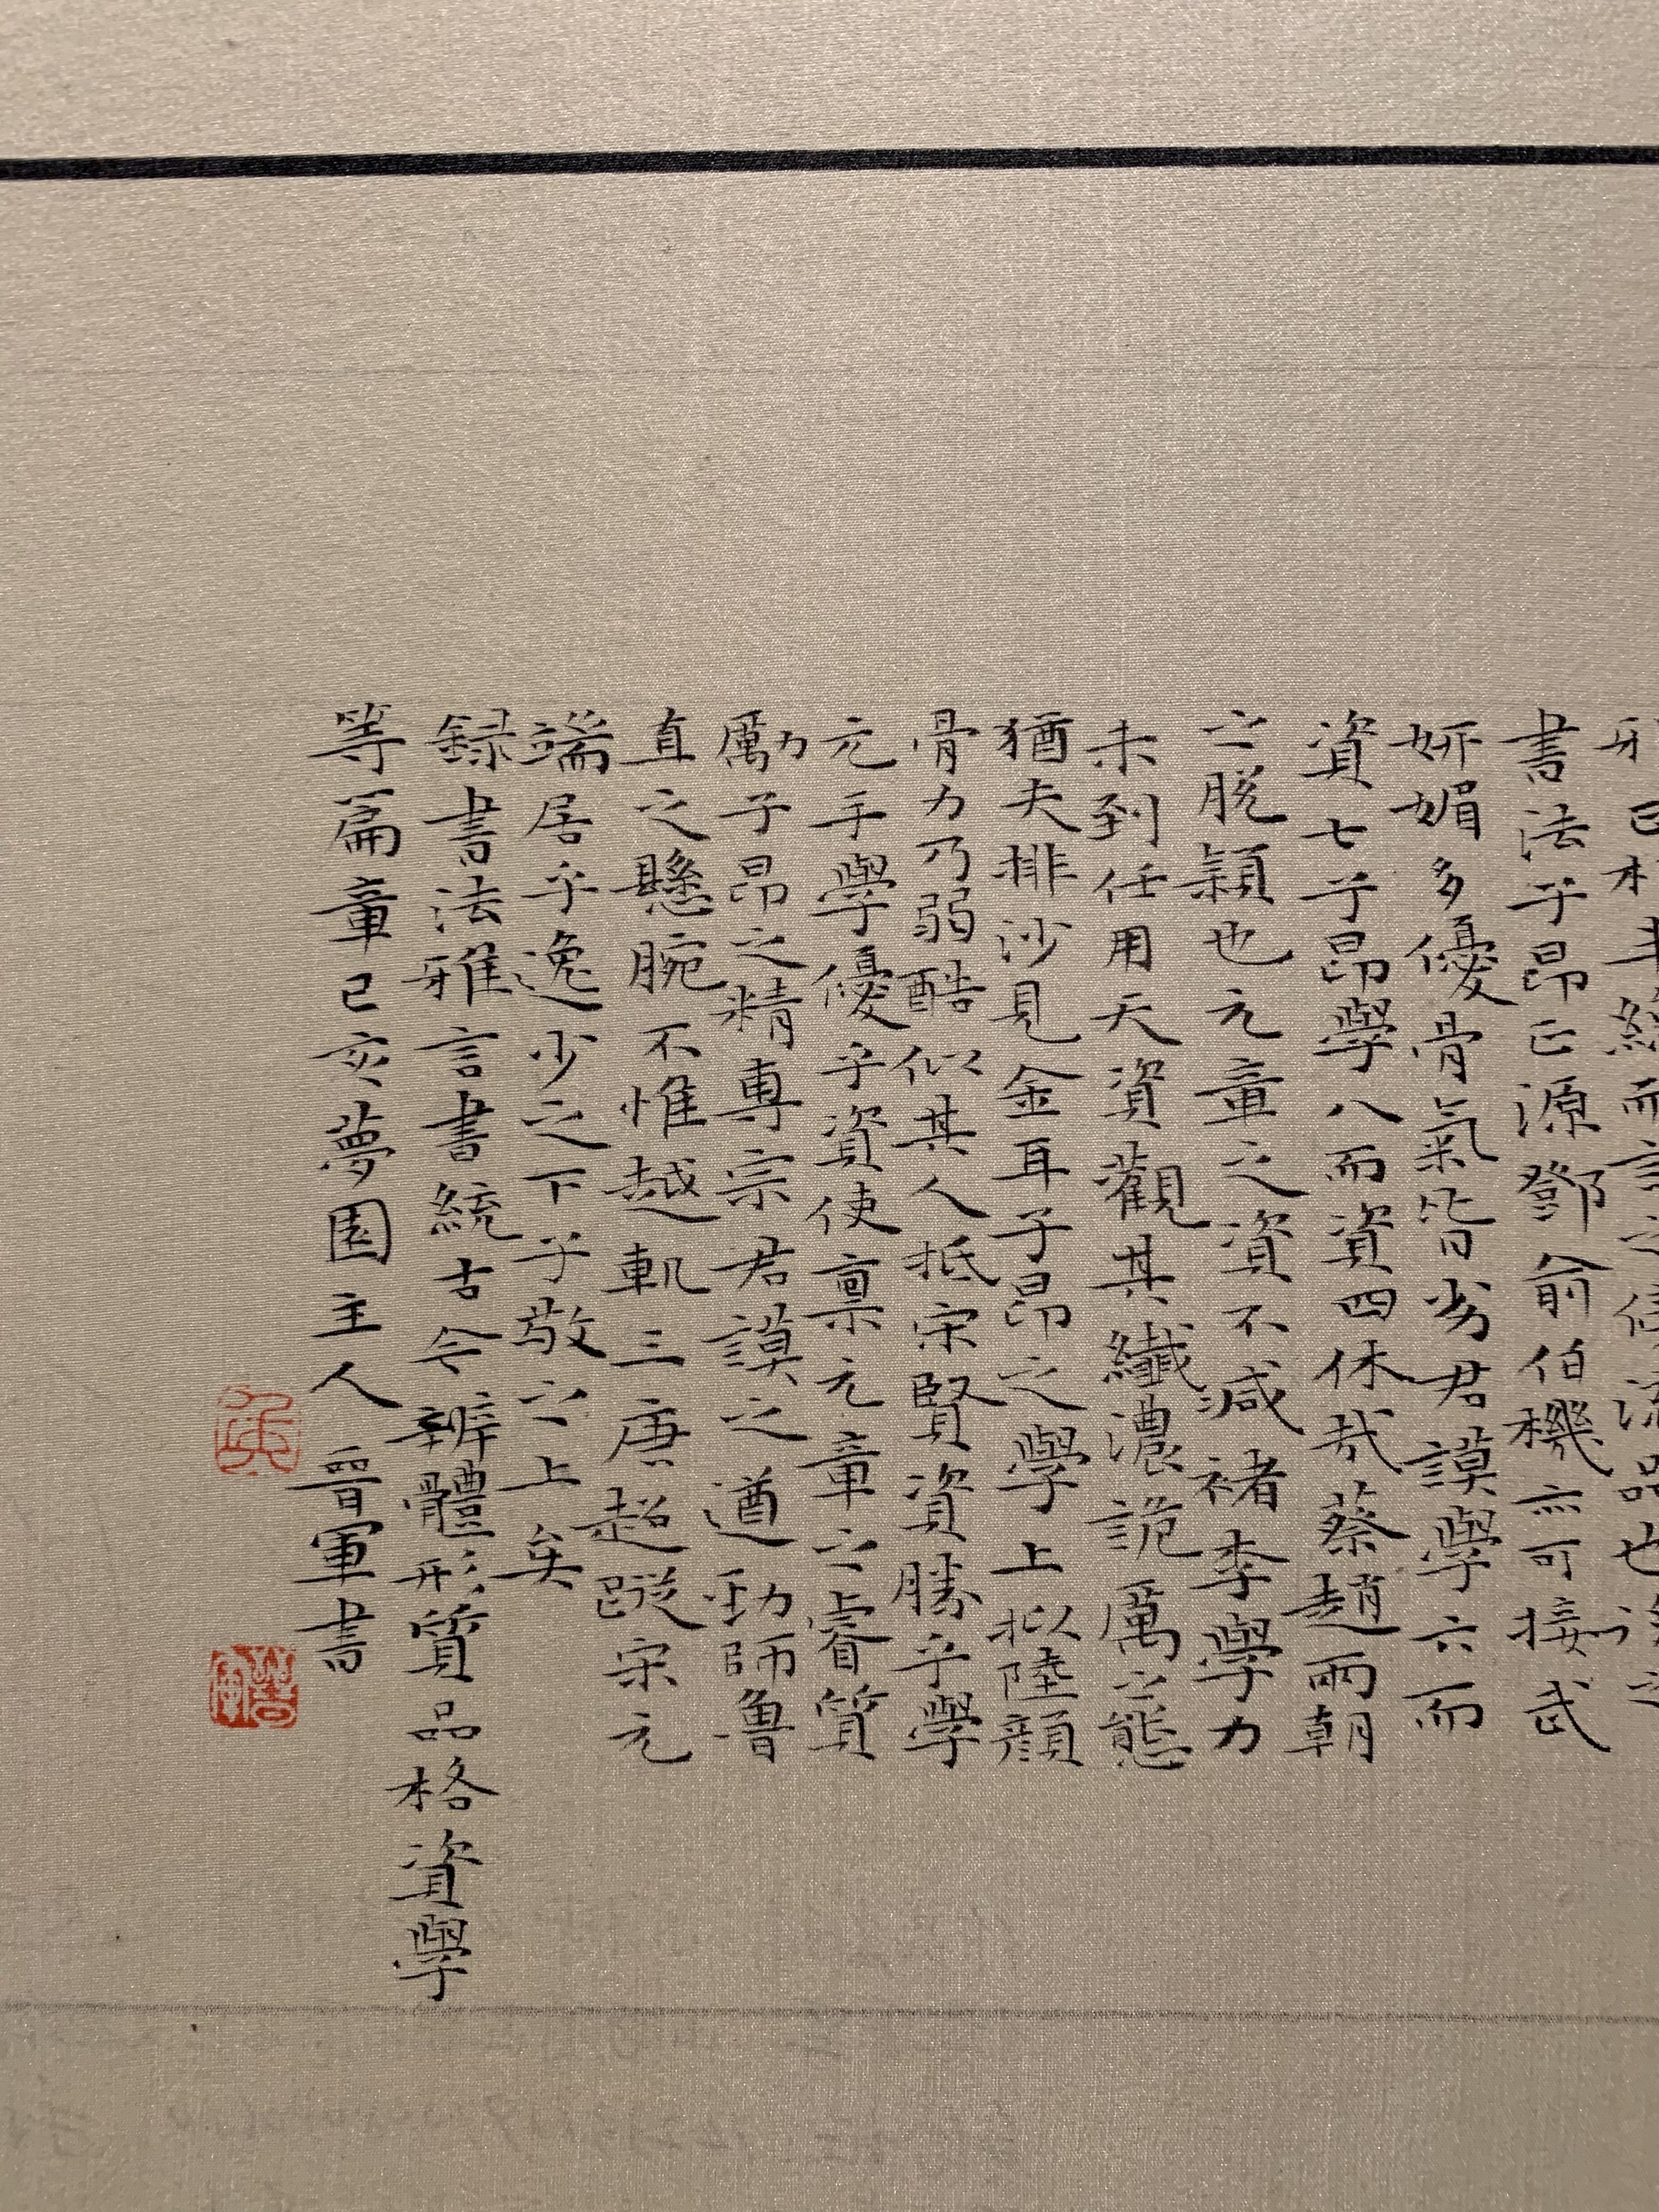 書法子昂正源鄧俞伯機亦可接武
妍媚多優骨氣皆劣君謨學六而
資七子昂學八而資四休哉蔡趙兩朝
之脫穎也元章之資不減褚李學力
未到任用天資觀其纖濃詭厲之態
猶夫排沙見金耳子昂之學上擬陸顏
骨力乃弱酷似其人抵宋賢資勝乎學
元手學優乎資使禀元章之睿質
勵子昂之精專宗君謨之遒勁師魯
直之懸腕不惟越軌三唐超蹤宋元
端居乎逸少之下子敬之上矣
録書法雅言書統古今辨體形質品格資學
等篇章己亥夢園主人晉軍書